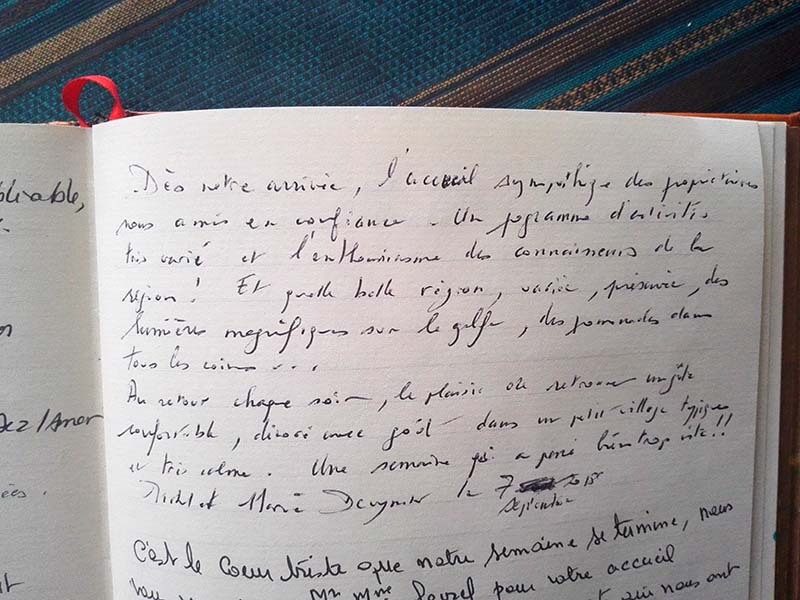 Dès notre arrivée, l'accueil sympathique des propriétaires
nous a mis en confiance. Un programme d'activités
très varié et l'enthousiasme des connaisseurs de la
région! Et quelle belle région, variée, préservée, des
lumières magnifiques sur le golfe, des promenades dans
tous les coins...
Au retour chaque soir, le plaisir de retrouver un gîte
confortable, décoré avec goût dans un petit village typique
et très calme. Une semaine qui a passé bien trop vite!!
Michel et Marie le 7 2015
septembre
C'est le Coeur triste que notre semaine se termine, nous
Mr Mme pour votre accueil
qui nous ont